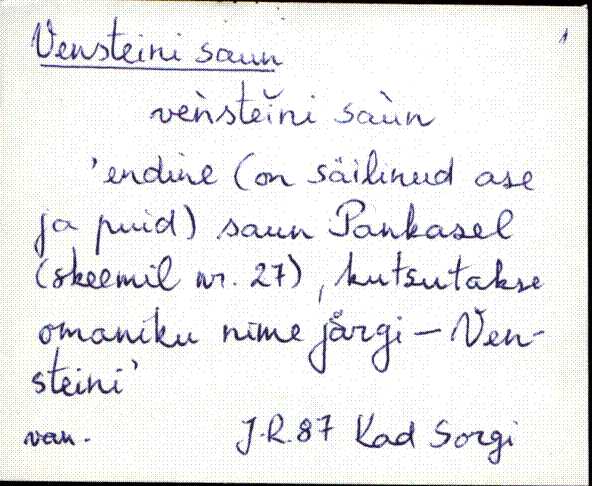 Vensteini saun 1
vèǹstĕini saùn
'endine (on säilinud ase
ja puid) saun Pankasel
(skeemil nr. 27), kutsutakse
omaniku nime järgi – Ven-
steini'
van. J.R.87 Kad Sorgi